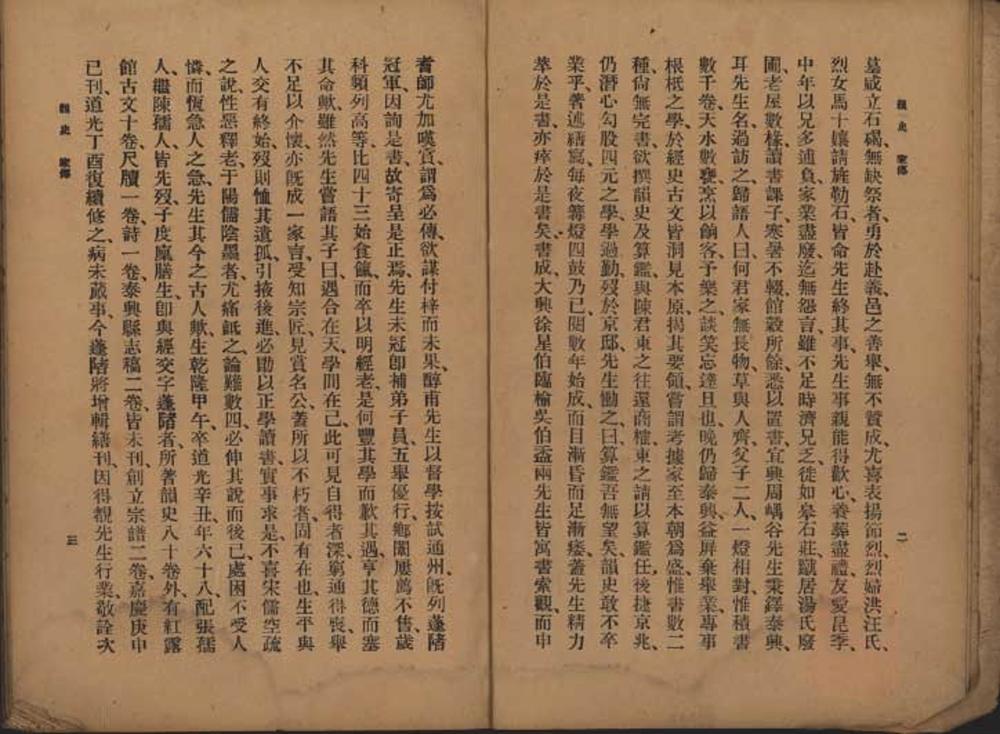 韻史 家傳
二
墓咸立石碣、無缺祭者勇於赴義、邑之善舉、無不贊成、尤喜表揚節烈、烈婦洪汪氏、
烈女馬十孃、請旌勒石、皆命先生終其事、先生事親能得歡心、養葬盡禮、友愛昆季、
中年以兄多逋負、家業盡廢、迄無怨言、雖不足時濟兄乏、徙如皋石莊、蹴居湯氏廢
圃、老屋數椽、讀書課子、寒暑不輟、館穀所餘、悉以置書、宜興周嵎谷先生秉鐸泰興、
耳先生名、過訪之、歸語人曰、何君家無長物、草與人齊、父子二人、一燈相對、惟積書
數千卷、天水數甕、烹以餉客、予樂之、談笑忘達旦也、晚仍歸泰興、益屏棄舉業、專事
根柢之學、於經史古文、皆洞見本原、揭其要領、嘗謂考據家至本朝爲盛、惟書數二
種尙無完書、欲撰韻史及算鑑、與陳君東之往還商榷、東之請以算鑑任、後捷京兆、
仍潛心勾股四元之學、學過勤、歿於京邸、先生慟之曰、算鑑吾無望矣、韻史敢不卒
業乎、著述繕寫、每夜籌燈、四鼓乃已、閱數年始成、而目漸昏而足漸痿、蓋先生精力
萃於是書、亦瘁於是書矣、書成、大興徐星伯、臨榆吳伯盉兩先生、皆寓書索觀、而申
韻史 家傳
三
耆師尤加嘆賞、謂爲必傳、欲謀付梓而未果、醇甫先生以督學按試通州、旣列蓬䧞
冠軍、因詢是書、故寄呈是正焉、先生未冠卽補弟子員、五舉優行、鄉闈屢薦不售、歲
科類列高等、比四十三始食餼、而卒以明經老、是何豐其學而歉其遇、亨其德而塞
其命歟、雖然、先生嘗語其子曰、遇合在天、學問在己、此可見自得者深、窮通得喪、舉
不足以介懷、亦旣成一家言、受知宗匠、見賞名公、蓋所以不朽者、固有在也、生平與
人交有終始、歿則恤其遺孤、引掖後進、必勖以正學、讀書實事求是、不喜宋儒空疏
之說、性惡釋老、于陽儒陰墨者、尤痛詆之、論難數四、必伸其說而後已、處困不受人
憐、而恆急人之急、先生其今之古人歟、生乾隆甲午、卒道光辛丑、年六十八、配張孺
人、繼陳孺人、皆先歿、子度、廩膳生、卽與經交字蓬䧞者、所著韻史八十卷外、有紅露
館古文十卷、尺牘一卷、詩一卷、泰興縣志稿二卷、皆未刊、創立宗譜二卷、嘉慶庚申
已刊、道光丁酉復續修之、病未蕆事、今蓬䧞將增輯續刊、因得覩先生行業、敬詮次